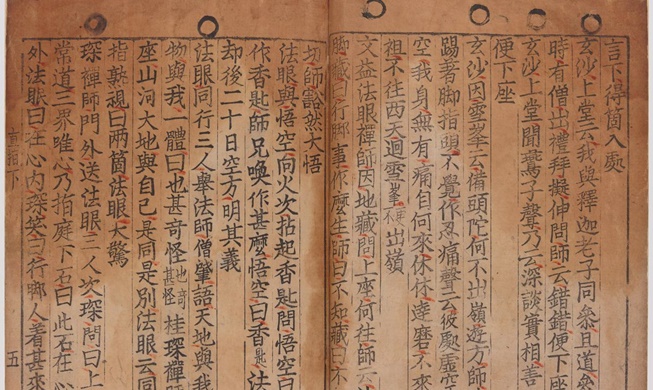 言下得箇入處
玄沙上堂云我與釋迦老子同叅且道叅
時有僧出禮拜擬伸問師云錯錯便下座
玄沙上堂聞鷰子聲乃云深談實相善
便下座
玄沙因雪峯云備頭陀何不出嶺遊方師
踢著脚指頭不覺作忍痛聲云彼歐虛空
空我身無有痛自何來休休達磨不來
祖不往西天迴雪峯更不出嶺
文益法眼禪師因地藏問上座何往師云
脚藏曰行脚事作麽生師曰不知藏曰不
切師豁然大悟
法眼與悟空向火次拈起香匙問悟空曰
作香匙師兄喚作甚麽悟空曰香匙法
却後二十日空方明其義
法眼同行三人舉法師僧肇語天地與我
物與我一體曰也甚奇怪也甚奇怪桂琛禪
座山河大地與自己是同是別法眼云同
指熟視曰兩箇法眼大驚
琛禪師門外送法眼三人次琛問曰上
常道三界唯心乃指庭下石曰此石在心
外法眼曰在心內琛笑曰行脚人着甚來
直指下 五